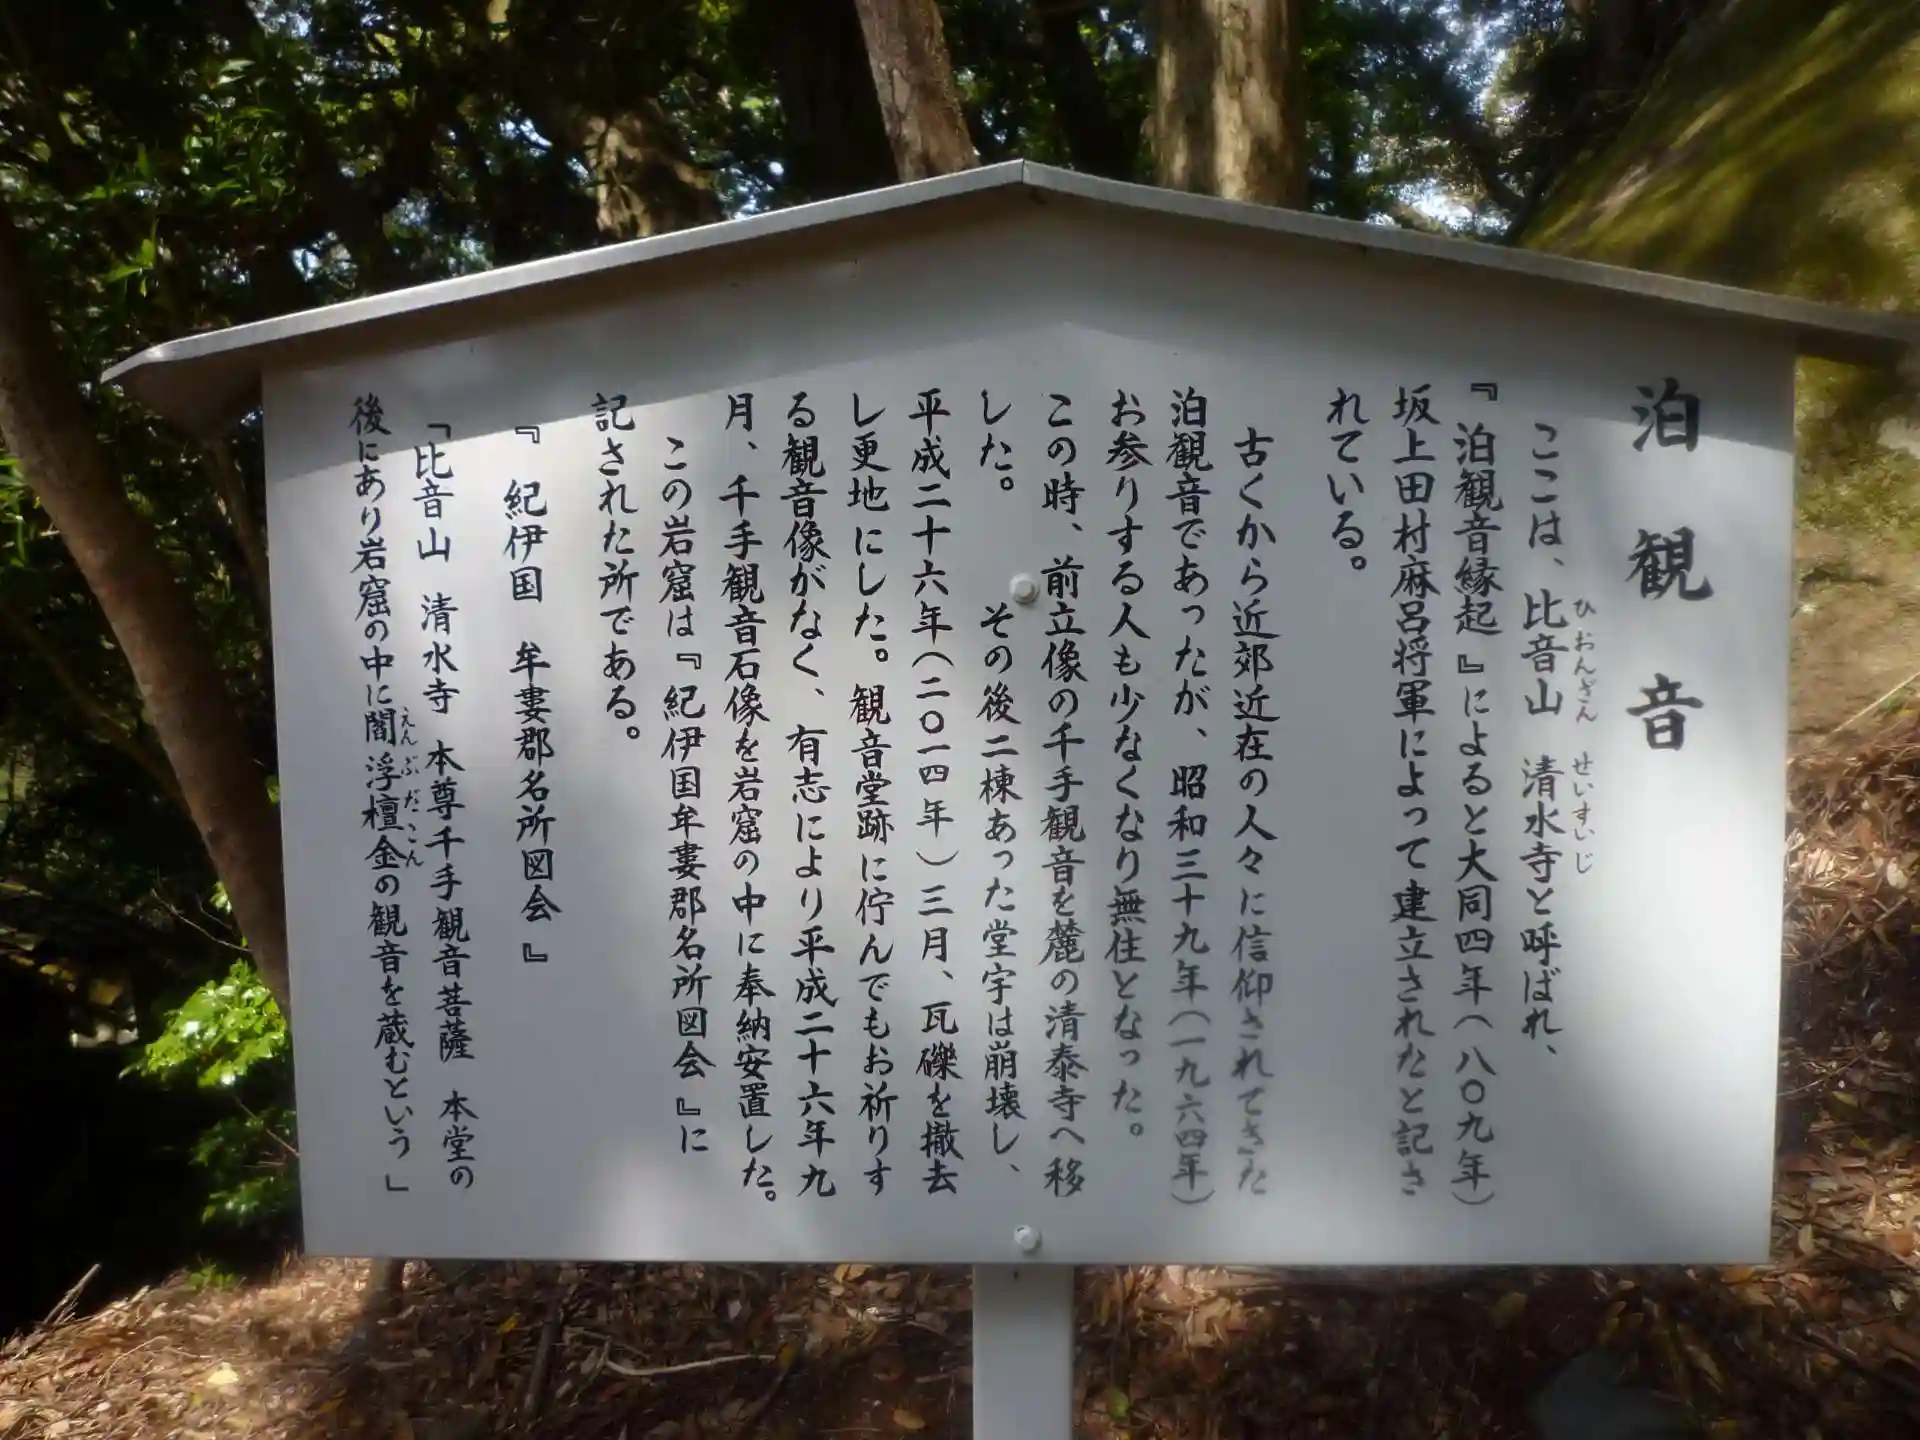 泊観音
ここは、比音山　清水寺と呼ばれ、
ひおんざん　せいすいじ
『泊観音縁起』によると大同四年（八〇九年）
坂上田村麻呂将軍によって建立されたと記さ
れている。
古くから近郊近在の人々に信仰されてきた
泊観音であったが、昭和三十九年（一九六四年）
お参りする人も少なくなり無住となった。
この時、前立像の千手観音を麓の清泰寺へ移
した。　その後二棟あった堂宇は崩壊し、
平成二十六年（二〇一四年）三月、瓦礫を撤去
し更地にした。観音堂跡に佇んでもお祈りす
る観音像がなく、有志により平成二十六年九
月、千手観音石像を岩窟の中に奉納安置した。
この岩窟は『紀伊国牟婁郡名所図会』に
記された所である。
『紀伊国　牟婁郡名所図会』
「比音山　清水寺　本尊千手観音菩薩　本堂の
後にあり岩窟の中に閻浮檀金の観音を蔵むという」
えんぶだごん